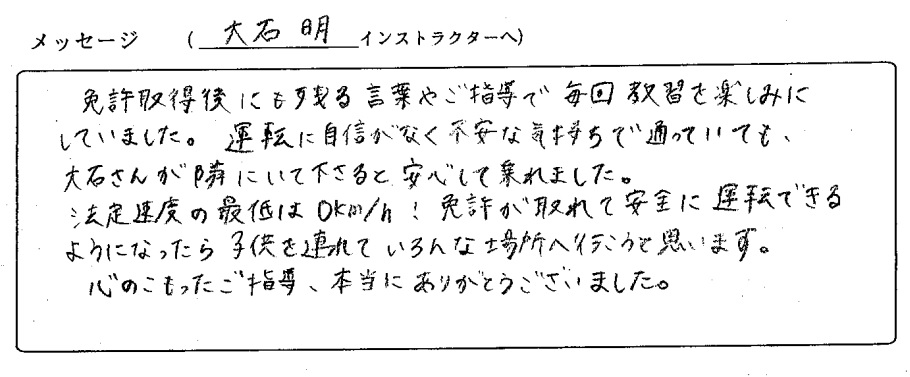 メッセージ (大石 明 インストラクターへ)
免許取得後にも残る言葉やご指導で毎回教習を楽しみに
していました。運転に自信がなく不安な気持ちで通っていても、
大石さんが隣にいて下さると安心して乗れました。
法定速度の最低は0km/h！免許が取れて安全に運転できる
ようになったら子供を連れていろんな場所へ行こうと思います。
心のこもったご指導、本当にありがとうございました。